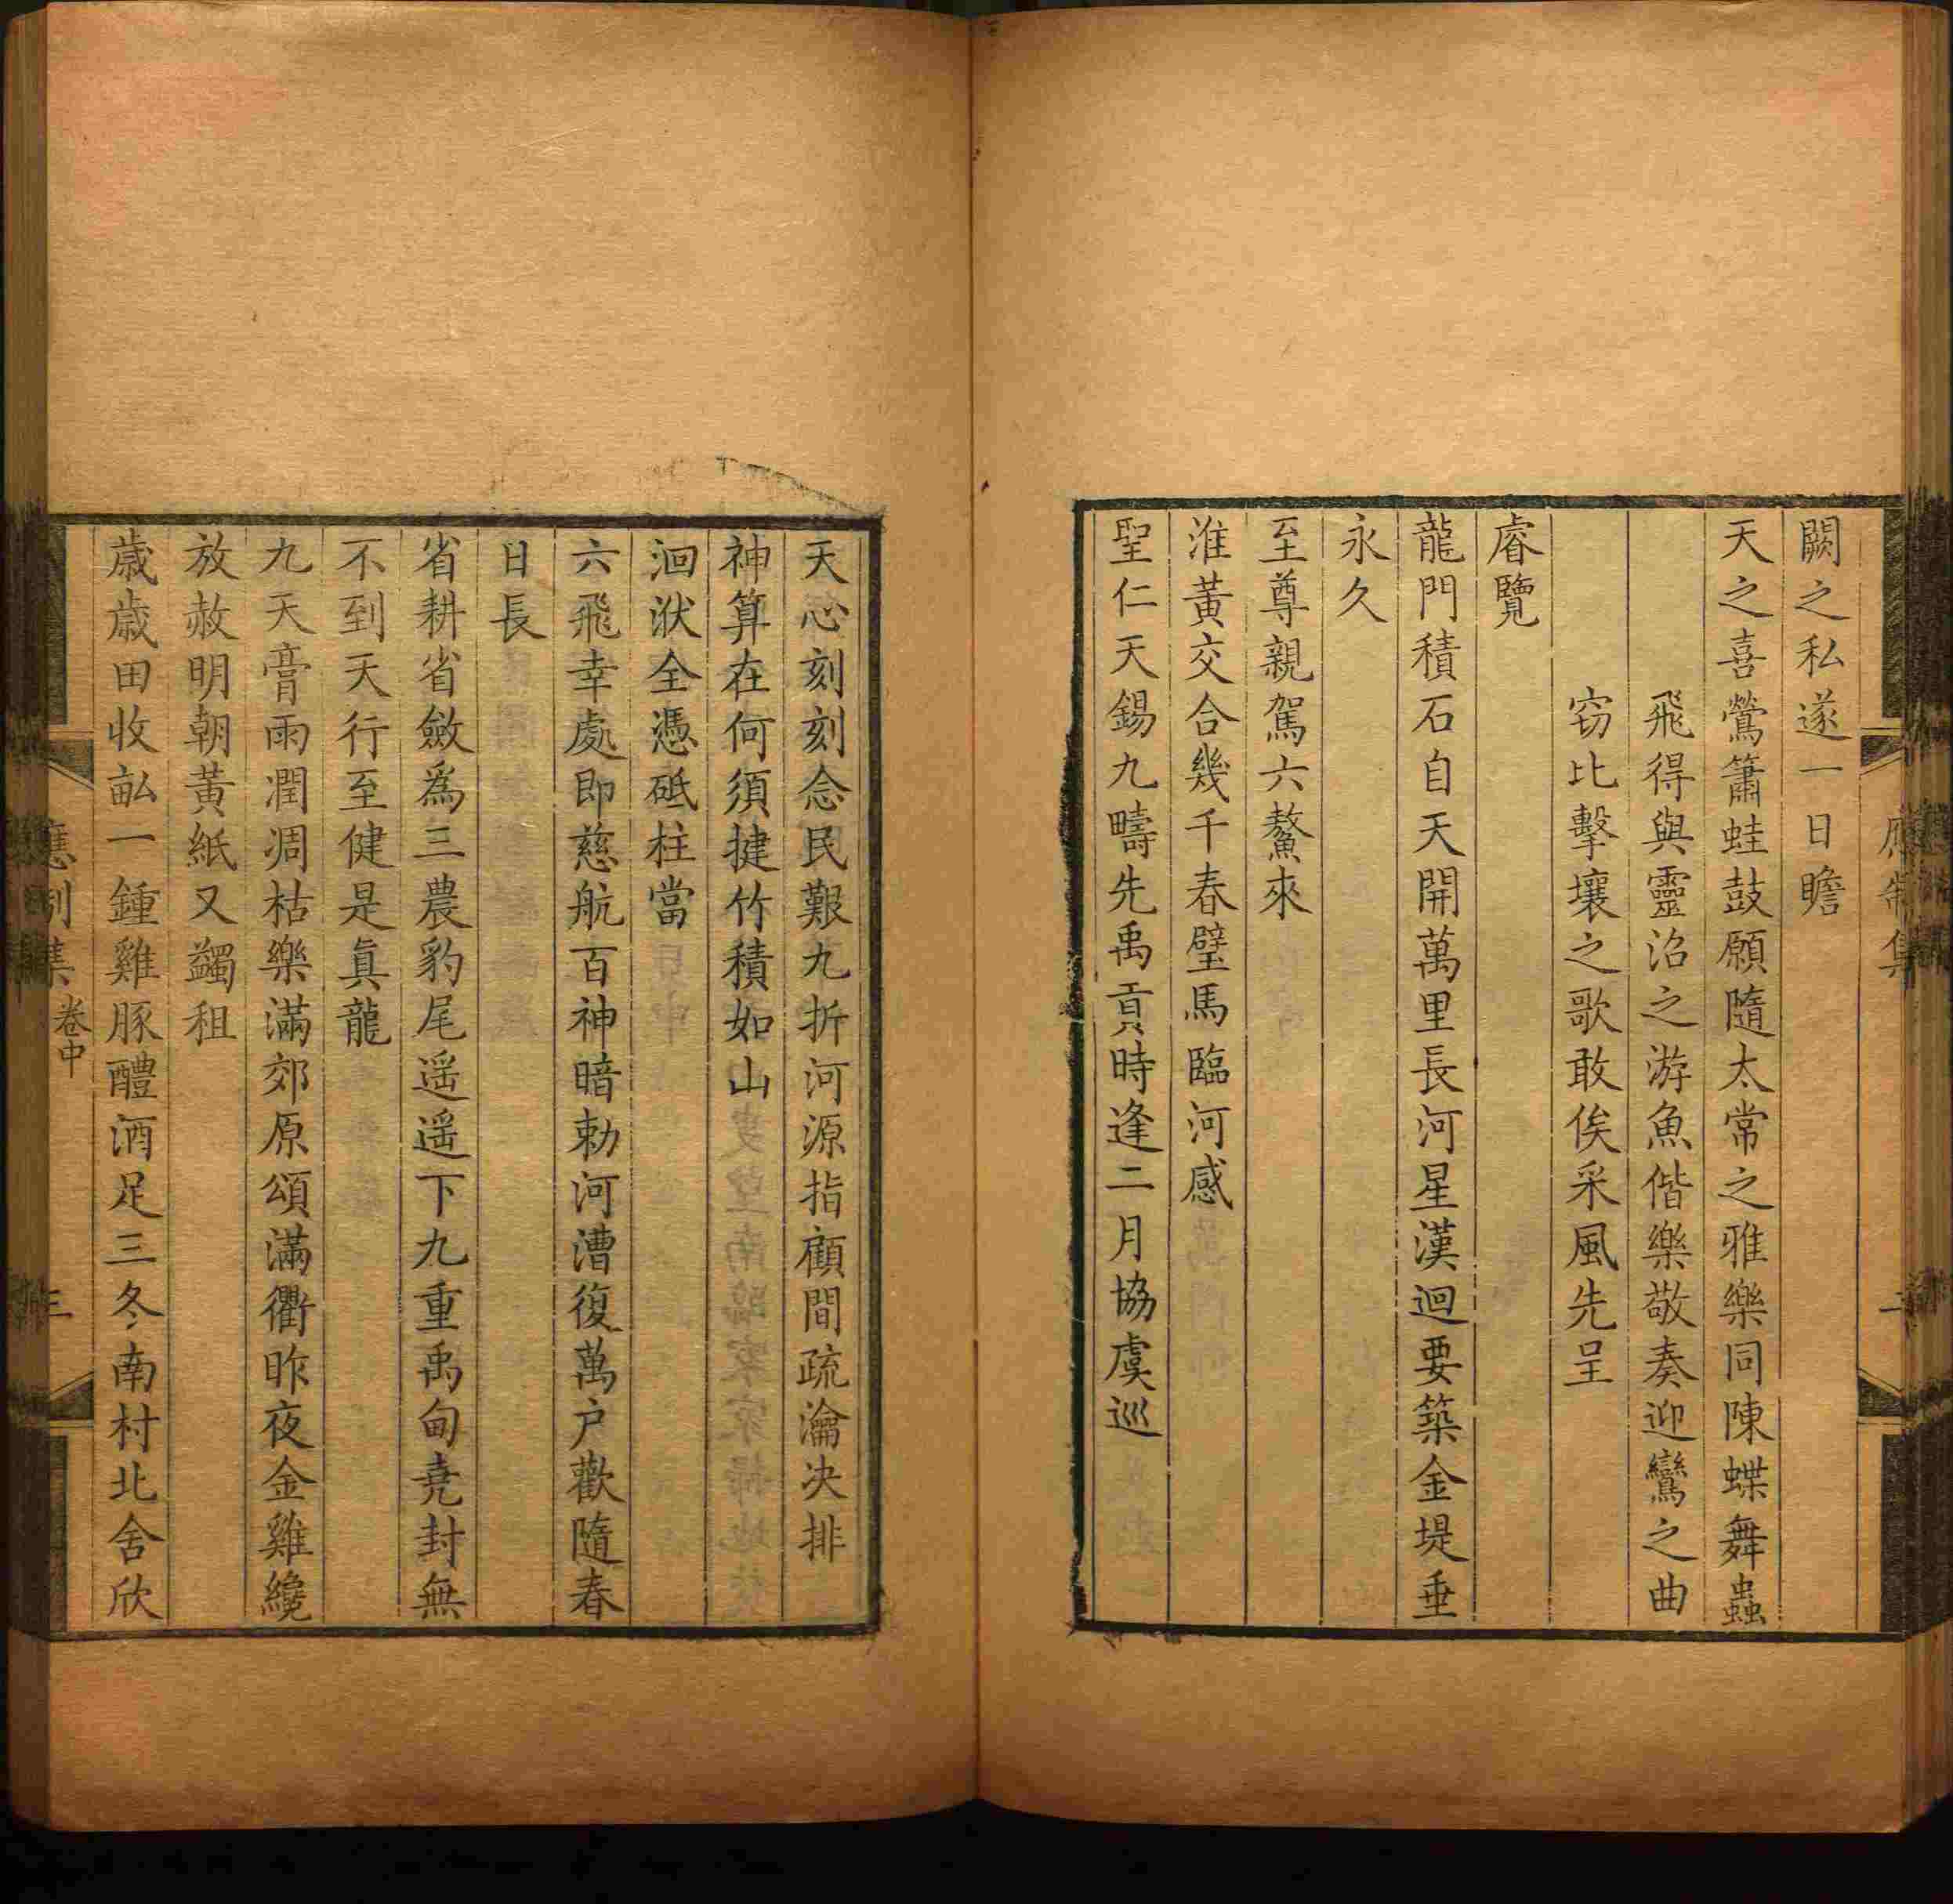 闕之私遂一日瞻
天之喜鶯簫蛙鼓願隨太常之雅樂同陳蝶舞蟲
飛得與靈沼之游魚偕樂敬奏迎鸞之曲
窃比擊壤之歌敢俟采風先呈
睿覽
龍門積石自天開萬里長河星漢迴要築金堤垂
永久
至尊親駕六鰲來
淮黃交合幾千春璧馬臨河感
聖仁天錫九疇先禹貢時逢二月協虞巡
天心刻刻念民艱九折河源指顧間疏瀹決排
神算在何須揵竹積如山
洄洑全憑砥柱當
六飛幸處即慈航百神暗勅河漕復萬户歡隨春
日長
省耕省斂爲三農豹尾遥遥下九重禹甸堯封無
不到天行至健是真龍
九天膏雨潤凋枯樂滿郊原頌滿衢昨夜金雞纔
放赦明朝黃紙又蠲租
歲歲田收畝一鍾雞豚醴酒足三冬南村北舍欣
應制集
卷中
三